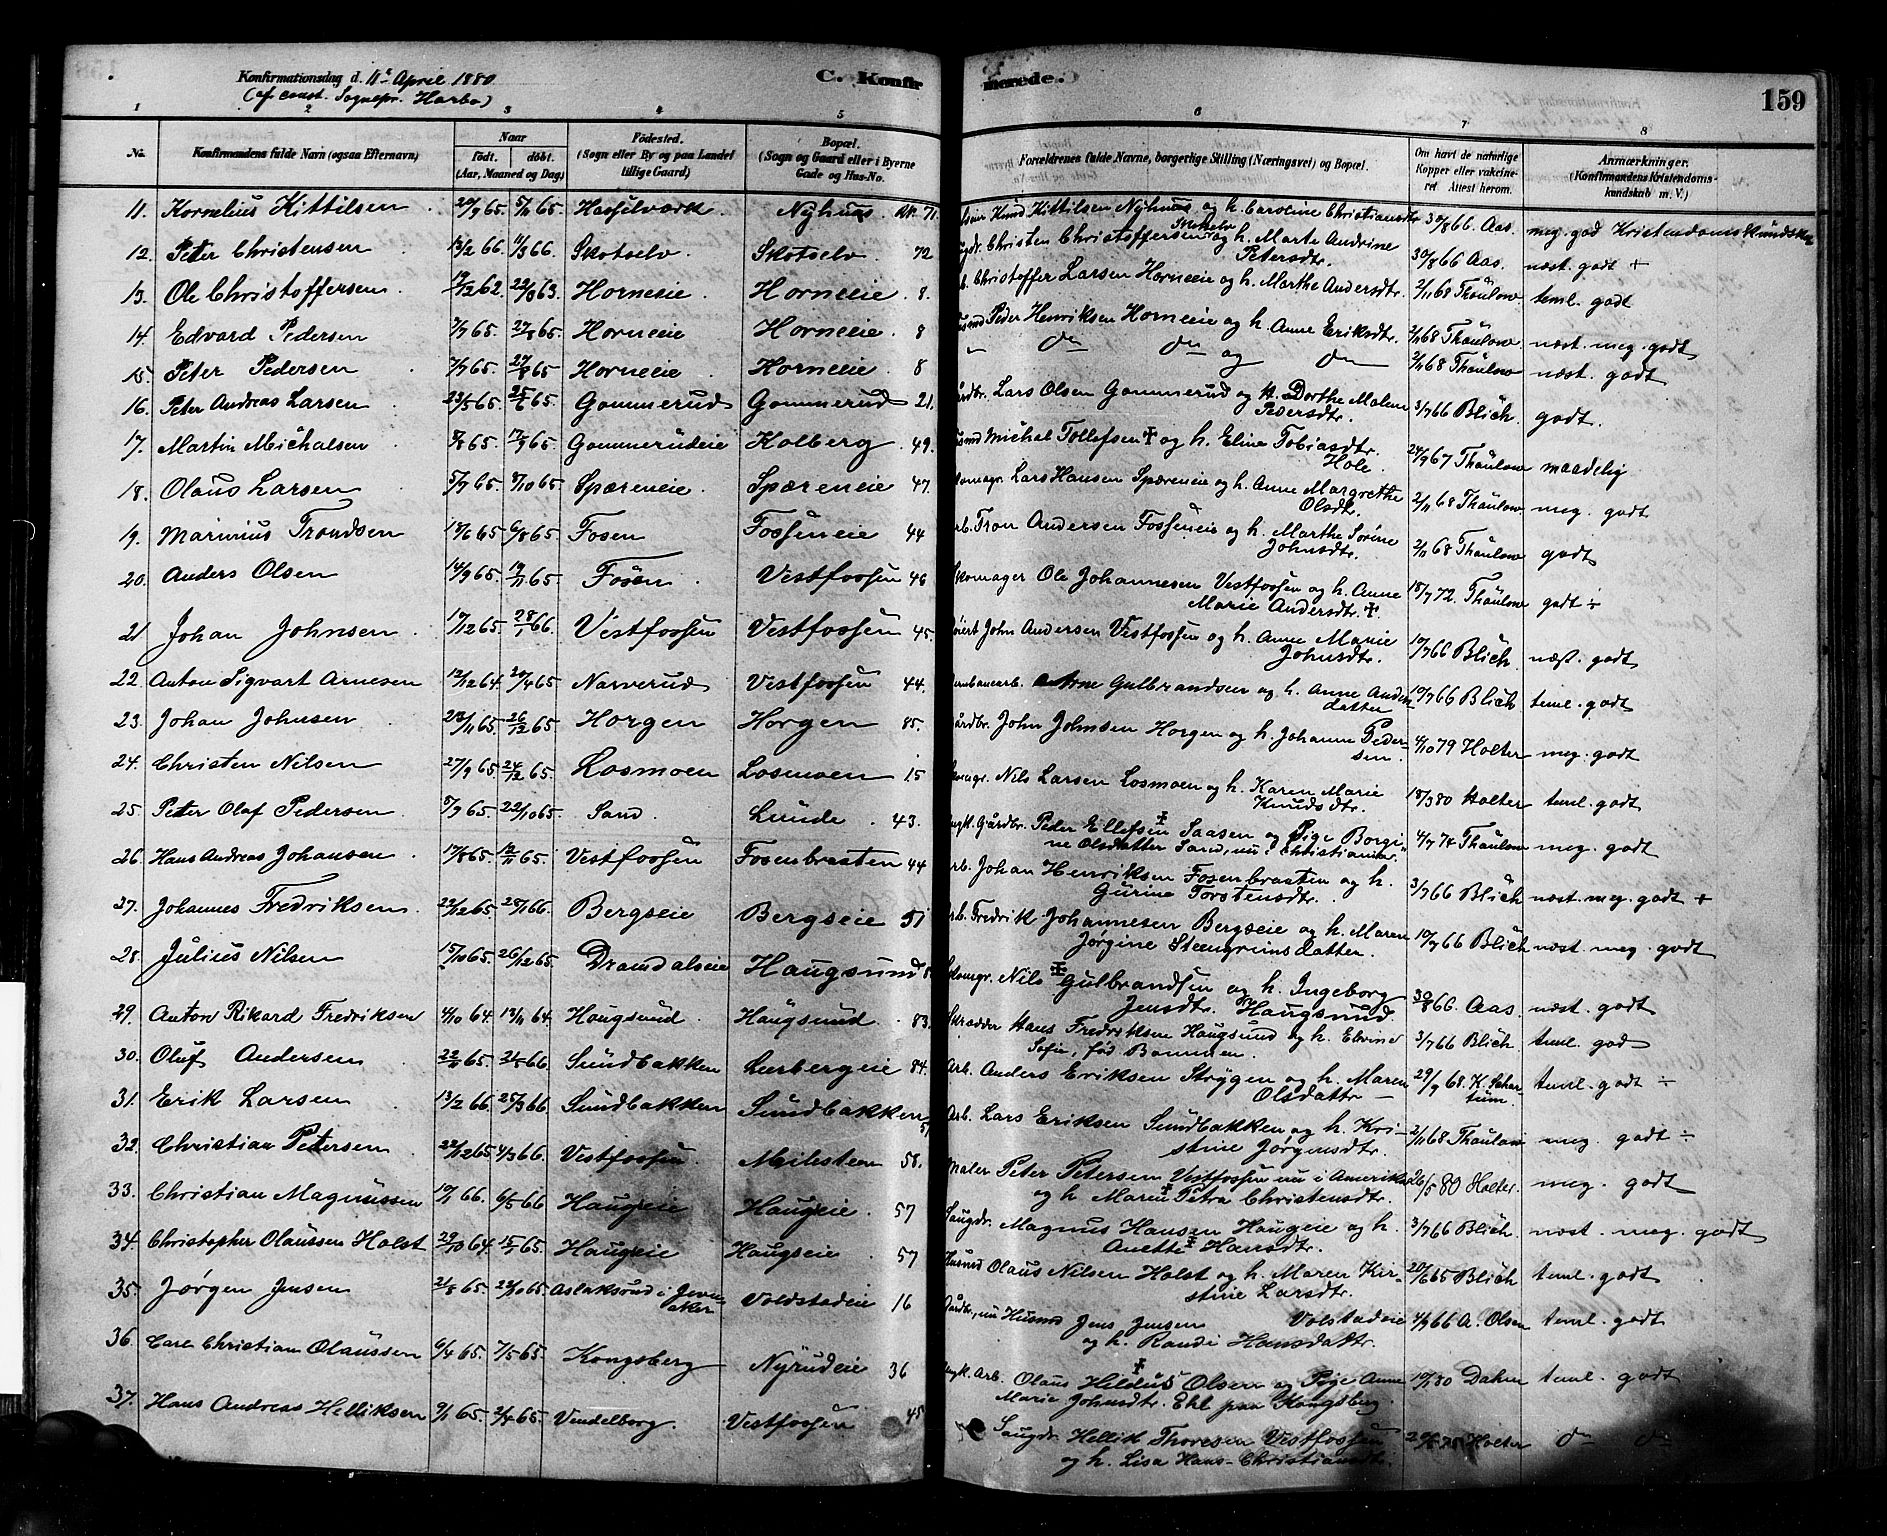 Konfirmationsdag d. 11te April 1880 C. Konfirmerede. 159
(af const. Sognepr. Harbo)
1 2 3 4 5 6 7 8
No. Konfirmandens fulde Navn (ogsaa Efternavn) Naar født. døbt. (Aar, Maaned og Dag) Födested. (Sogn eller By og paa Landet tillige Gaard) Bopæl. (Sogn og Gaard eller i Byerne Gade og Hus-No. Forældrenes fulde Navne, borgerlige Stilling (Næringsvei) og Bopæl. Om havt de naturlige Kopper eller vakcineret. Attest herom. Anmærkninger. (Konfirmandens Kristendomskundskab m. V.)
11. Kornelius Kittilsen 20/9 65. 5/11 65. Hasselværk Nyhus 71. Knud Kittilsen Nyhus og h. Caroline Christiansdtr 30/8 66 Aas. meg. god Kristendomskundskab
12. Peter Christensen 13/2 66. 11/3 66. Skotselv Skotselv 72 Christen Christoffersen Skotselv og h. Marte Andrine Petersdtr. 30/8 66 Aas. næst. godt +
13. Ole Christoffersen 19/12 62. 22/3 63. Horneeie Horneeie 8. Christoffer Larsen Horneeie og h. Marthe Andersdtr. 2/11 68 Thaulow. teml. godt
14. Edvard Pedersen 7/7 65. 27/8 65. Horneeie Horneeie 8 Husmd Peder Henriksen Horneeie og h. Anne Eriksdtr. 2/11 68 Thaulow næst. meg. godt
15. Peter Pedersen 7/7 65. 27/8 65 Horneeie Horneeie 8 " do do og do 2/11 68 Thaulow næst. godt
16. Peter Andreas Larsen 23/5 65. 25/6 65. Gommerud Gommerud 21. Gårdbr. Lars Olsen Gommerud og h. Dorthe Malene Pedersdtr. 3/7 66 Blich. godt.
17. Martin Michalsen 65. 17/9 65. Gommerudeie Kolberg 49. Husmd Michel Tollefsen ✝ og h. Eline Tobiasdtr. Hole. 24/9 67 Thaulow maadelig
18. Olaus Larsen 5/9 65. 8/10 65. Spæreneie Spæreneie 47. Skomagr. Lars Hansen Spæreneie og h. Anne Margrethe Olsdtr. 2/11 68 Thaulow meg. godt
19. Marinius Trondsen 18/6 65. 6/8 65. Fosen Fossneie 44 Arb. Tron Andersen Fossneie og h. Marthe Sørine Johnsdtr. 2/11 68 Thaulow godt
20. Anders Olsen 14/9 65. 19/11 65. Fosen Vestfossen 46 Skomager Ole Johannesen Vestfossen og h. Anne Marie Andersdtr. ✝. 18/7 72. Thaulow godt ÷
21 Johan Johnsen 17/12 65. 28/1 66. Vestfossen Vestfossen 45. John Andersen Vestfossen og h. Anne Marie Johnsdtr. 10/7 66 Blich næst. godt
22. Anton Sigvart Arnesen 12/12 64. 20/4 65 Narverud Vestfossen 44. Jernbanearb. Arne Gulbrandsen og h. Anne Andersdatter 10/7 66 Blich teml. godt
23. Johan Johnsen 23/11 65. 26/12 65 Horgen Horgen 85. Gårdbr. John Johnsen Horgen og h. Johanne Pedersen. 4/10 79 Holter meg. godt
24. Christen Nilsen 27/9 65. 24/12 65. Losmoen Losmoen 15 Skomgr. Nils Larsen Losmoen og h. Karen Marie Knudsdtr. 18/3 80 Holter teml. godt
25. Peter Olaf Pedersen 8/9 65. 22/10 65. Sand. Lunde 43. Ungk. Gårdbr. Peder Ellefsen ✝ Saasen og Pige Borgine Olsdatter Sand, nu i Christiania. 4/7 74 Thaulow meg. godt
26. Hans Andreas Johansen 17/8 65. 12/11 65. Vestfossen Fosenbraaten 44 Arb. Johan Henriksen Fosenbraaten og h. Gurine Torstensdtr. 3/7 66 Blich næst. meg. godt +
27. Johannes Fredriksen 22/12 65. 25/1 66. Bergseie Bergseie 51 Arb. Fredrik Johannesen Bergseie og h. Maren Jørgine Steengrimsdatter. 10/7 66 Blich næst. meg. godt
28. Julius Nilsen 15/10 65. 26/12 65. Dramdalseie Haugsund Skomgr. Nils ✝ Gulbrandsen og h. Ingeborg Jensdtr. Haugsund. 30/8 66. Aas. næst. godt
29. Anton Rikard Fredriksen 4/10 64. 13/11 64. Hougsund Haugsund 83. Skrædder Hans Fredriksen Haugsund og h. Elvine Sofie, fød Bommen. 3/7 66 Blich teml. god
30. Oluf Andersen 22/11 65. 21/5 66. Sundbakken Lerbergeie 84. Arb. Anders Eriksen Strygen og h. Maren Olsdatter – 29/9 68. K. Schartum. teml. godt ÷
31. Erik Larsen 13/2 66. 25/3 66. Sundbakken Sundbakken 51 Arb. Lars Eriksen Sundbakken og h. Kristine Jørgensdtr. 2/11 68 Thaulow meg. godt ÷
32. Christian Petersen 22/12 65. 4/3 66. Vestfossen Meilsteen 58. Maler Peter Petersen Vestfossen nu i Amerika og h. Maren ✝ Petra Christensdtr. 26/5 80 Holter. meg. godt
33. Christian Magnussen 10/1 66. 6/5 66 Haugseie Haugseie 57 Saugdr. Magnus Hansen Haugeie og h. Anette ✝ Hansdtr. 3/7 66 Blich. næst. meg. godt
34. Christopher Olaussen Holst 29/10 64. 15/1 65. Haugseie Haugseie 57 Husmd Olaus Nilsen Holst og h. Maren Kirstine Larsdtr. 20/6 65 Blich teml. godt
35. Jørgen Jensen 21/8 65. 22/10 65. Aslaksrud i Jevnaker Voldstadeie 16 Gårdbr., nu Husmd Jens Jensen Volstadeie og h. Randi Hansdattr. 4/9 66 A. Olsen teml. godt
36. Carl Christian Olaussen 6/4 65. 7/5 65. Kongsberg Nyrudeie 36 Ungk. Arb. Olaus Hildus ✝ Olsen og Pige Anne Marie Johnsdtr. Ekl paa Kongsberg. 10/1 80 Dahm teml. godt
37. Hans Andreas Helliksen 9/1 65. 2/4 65. Vendelborg. Vestfossen 45 Saugdr. Hellik Thoresen Vestfossen og h. Lisa Hans-Christiansdtr. 75 Holter do do